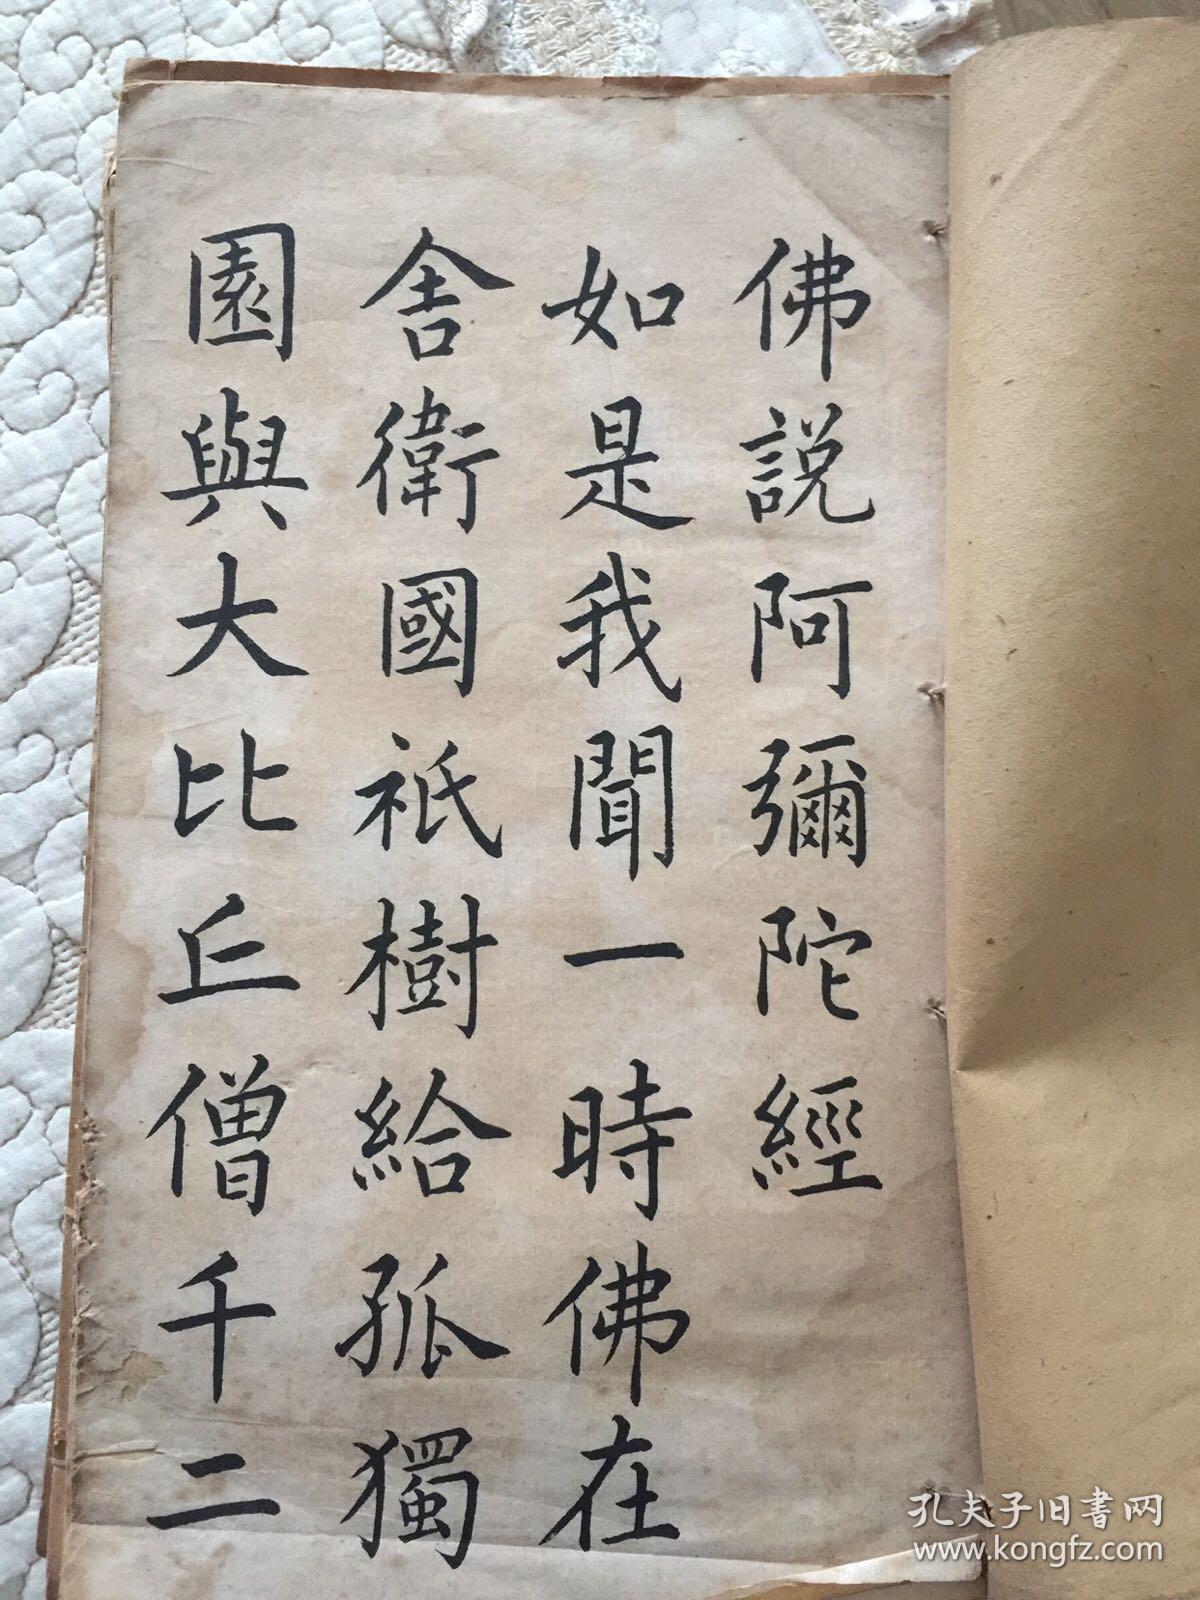 佛説阿彌陀經
如是我聞一時佛在
舍衛國祇樹給孤獨
園與大比丘僧千二
孔夫子旧书网
www.kongfz.com